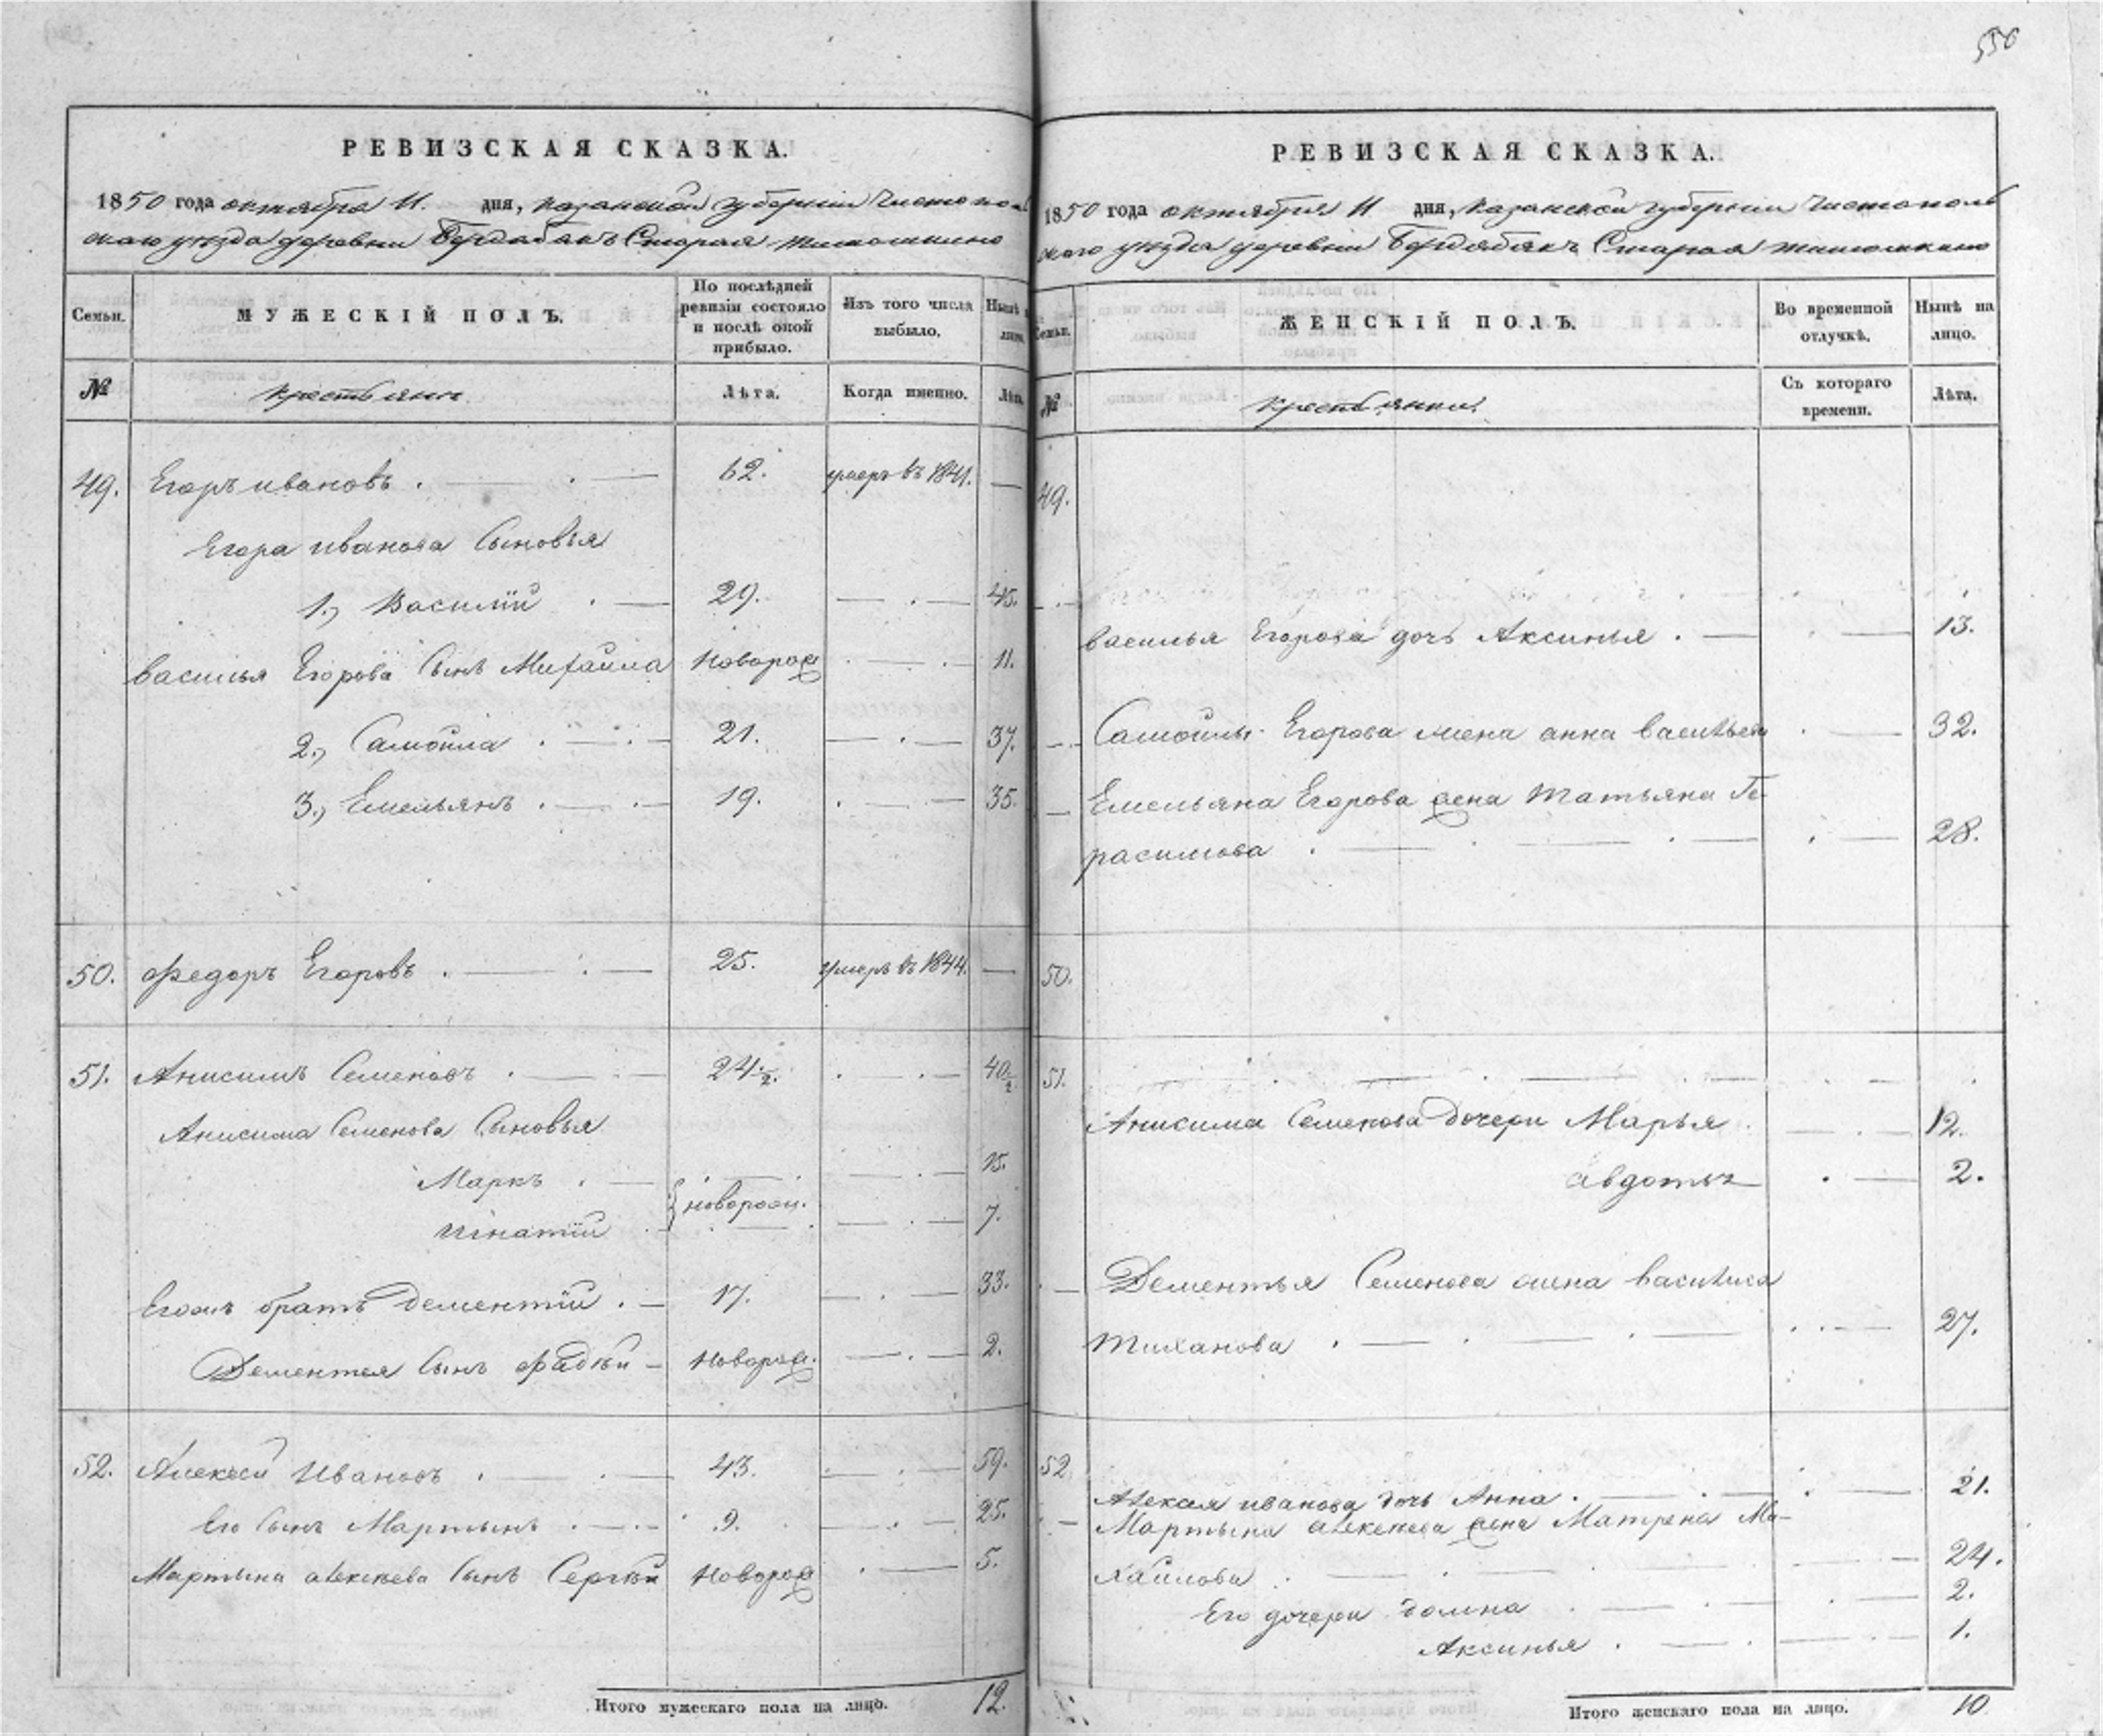 556
РЕВИЗСКАЯ СКАЗКА.
1850 года октября 11. дня, Казанской губернии Чистополь
скаго уезда деревни Бердебякъ Старая тимошкино
Семьи. МУЖЕСКІЙ ПОЛЪ. По послѣдней ревизіи состояло и послѣ оной прибыло. Изъ того числа выбыло. Нынѣ на лицо.
№ крестьяне Лѣта. Когда именно. Лѣта
49. Егоръ ивановъ . 62. умеръ въ 1841. —
Егора иванова Сыновья
1., Василій . — 29. — . — 45.
василья Егорова Сынъ Михайла Новорож . — . 11.
2., Самойла . — . — 21. — . — 37.
3., Емельянъ . — . — 19. . — . — 35.
50. Федоръ Егоровъ . — . — 25. умеръ въ 1844. —
51. Анисимъ Семеновъ . — 24 1/2. . . — 40 1/2
Анисима Семенова Сыновья
Маркъ . — 15.
новорож.
Игнатій . — 7.
Егожъ братъ дементій . — 17. — . — 33.
Дементея Сынъ Фадѣй — Новорож. — . — 2.
52. Алексѣй Ивановъ . — . — 43. 59.
Его Сынъ Мартынъ . — . 9. — . — 25.
Мартына алексѣева Сынъ Сергѣй Новорож . — 5.
Итого мужескаго пола на лицо. 12.
РЕВИЗСКАЯ СКАЗКА.
1850 года октября 11 дня, Казанской губернии Чистополь
скаго уезда деревни Бердебякъ Старая тимошкино
Семьи. ЖЕНСКІЙ ПОЛЪ. Во временной отлучкѣ. Нынѣ на лицо.
№ крестьянки. Съ котораго времени. Лѣта.
49.
василья Егорова дочь Аксинья . — . — 13.
Самойлы Егорова жена анна васильева . — 32.
Емельяна Егорова жена татьяна Ге-
расимова . — . — . — . — 28.
50.
51.
Анисима Семенова дочери Марья . — . — 12.
авдотья . — 2.
Дементья Семенова жена василиса
тиханова . — . — . — . . — 27.
52
Алексея иванова дочь Анна . — . — . — 21.
Мартына алексеева жена Матрена Ми-
хайлова . — . — . — 24.
Его дочери домна . — . — . — 2.
Аксинья . — . — . — 1.
Итого женскаго пола на лицо. 10